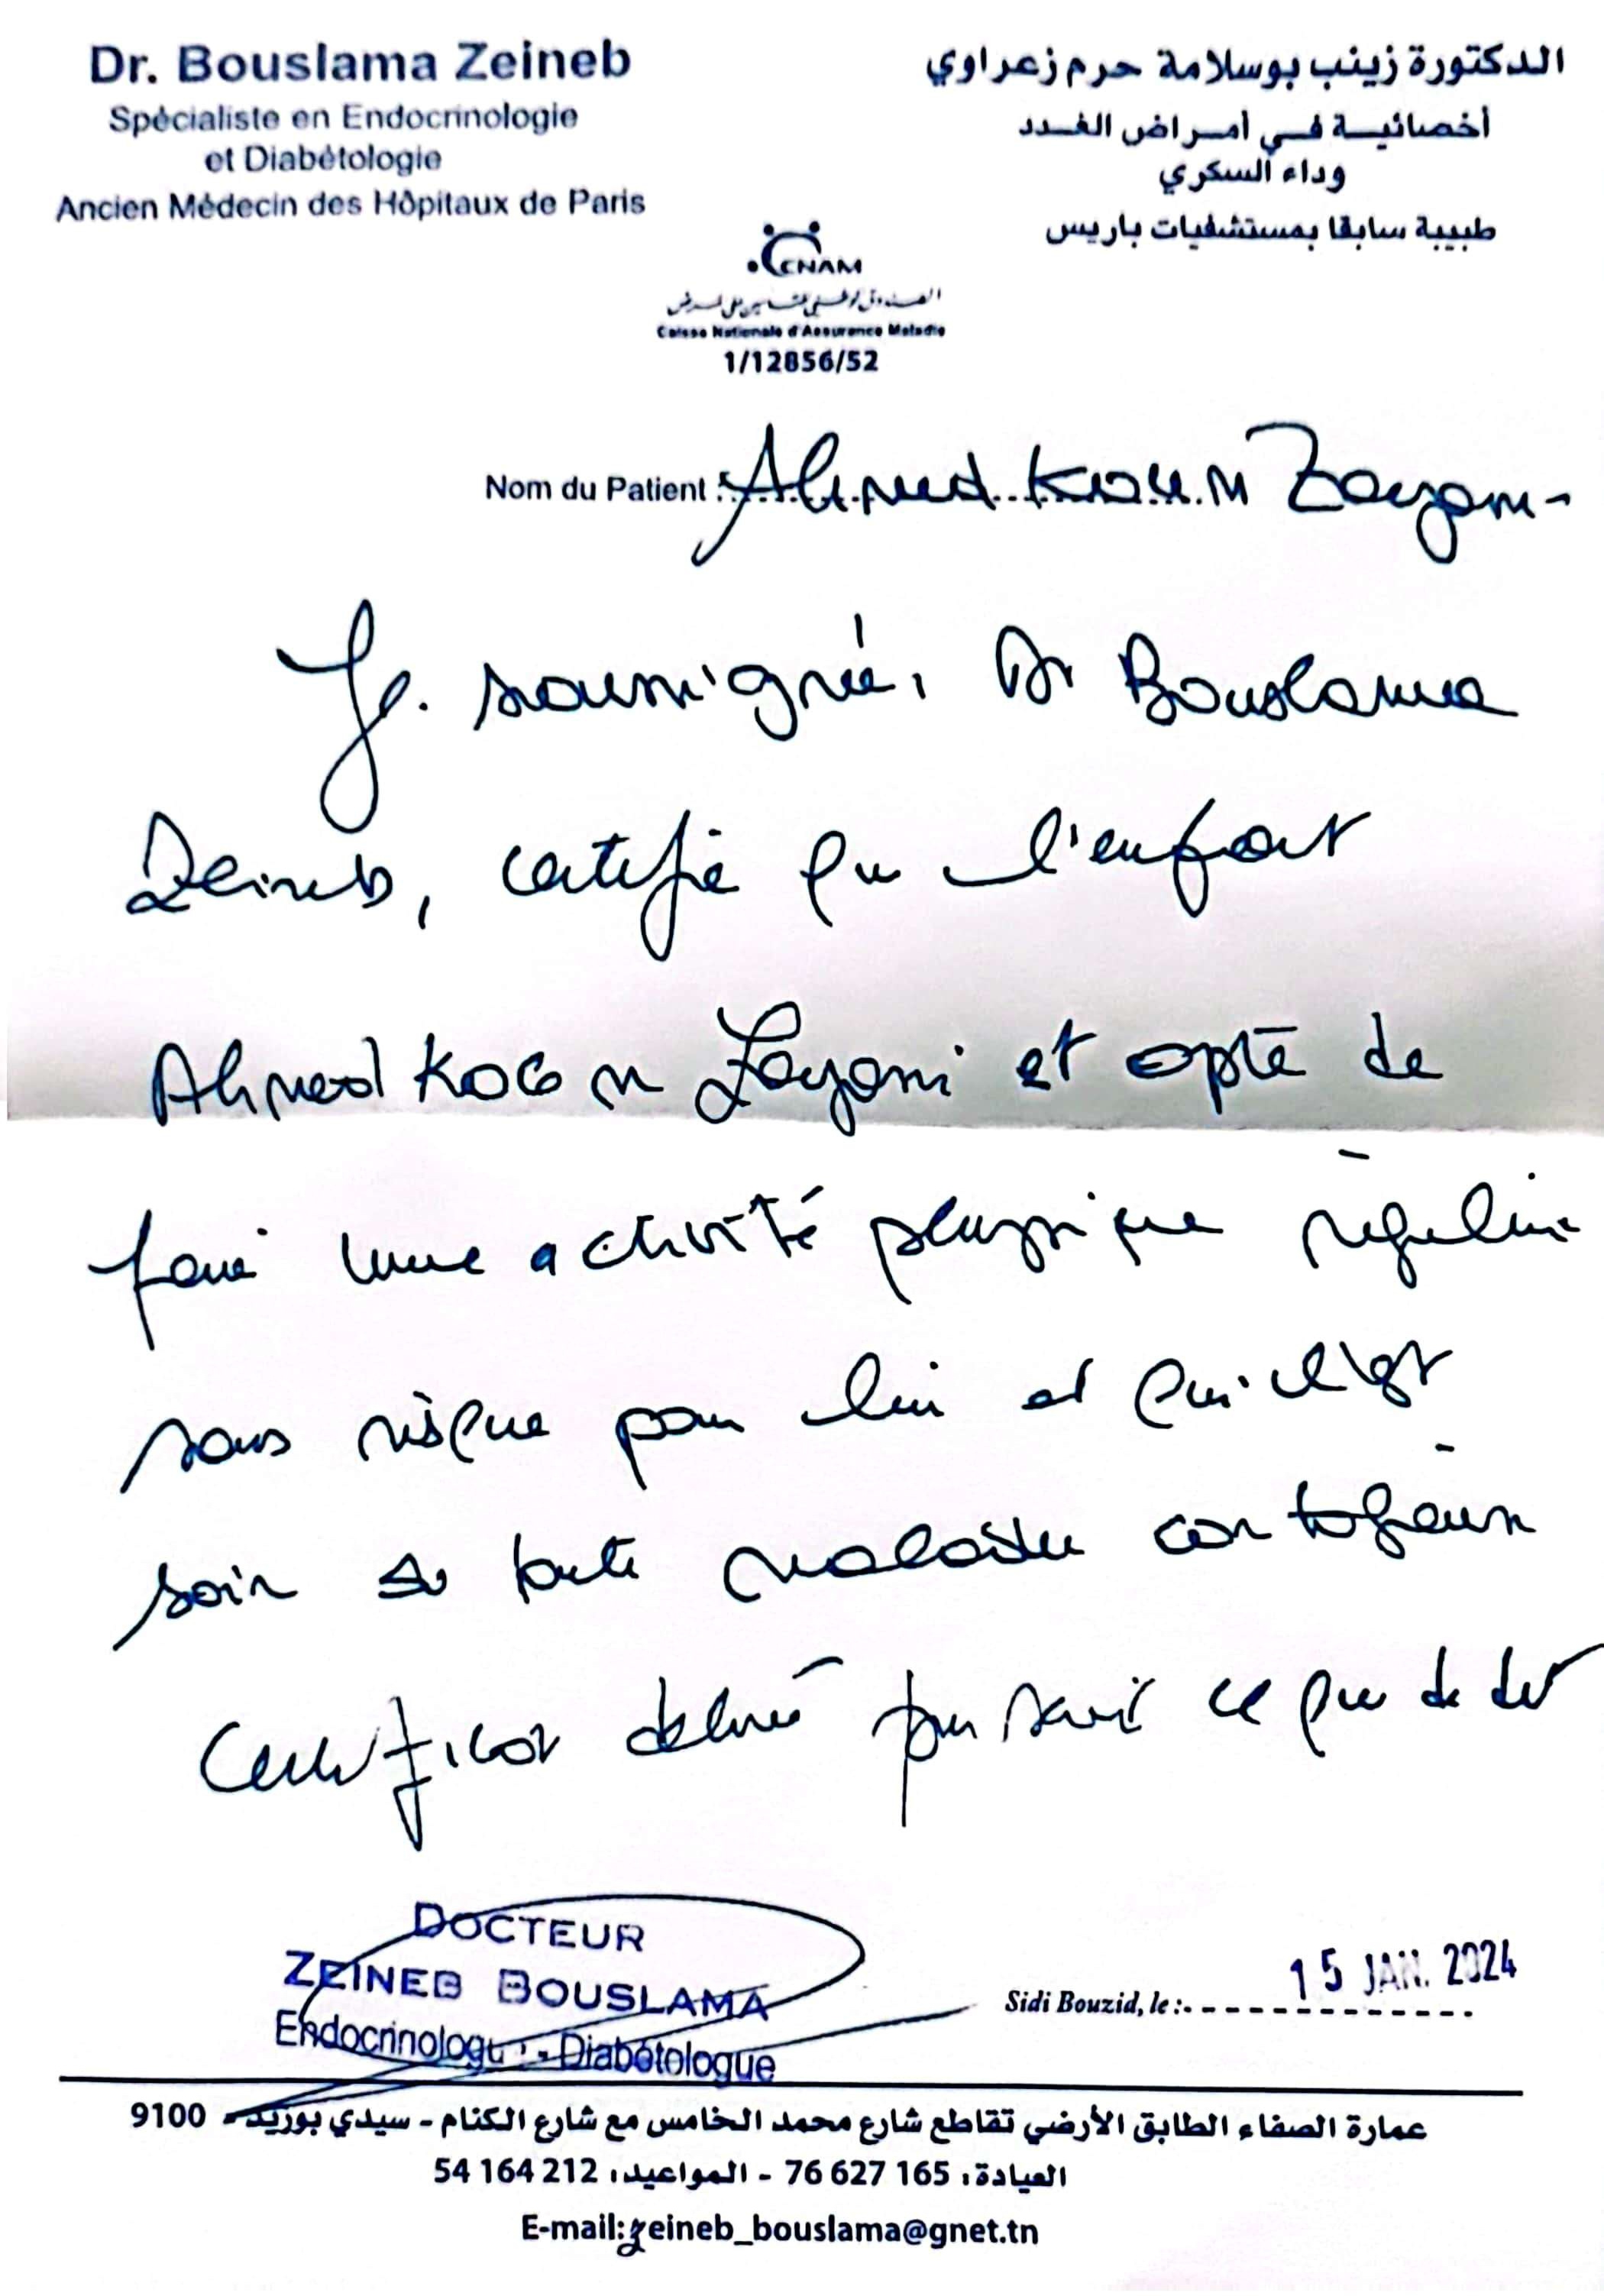 Dr. Bouslama Zeineb
Spécialiste en Endocrinologie
et Diabétologie
Ancien Médecin des Hôpitaux de Paris
الدكتورة زينب بوسلامة حرم زعراوي
أخصائية في أمراض الغدد
وداء السكري
طبيبة سابقا بمستشفيات باريس
CNAM
الصندوق الوطني للتأمين على المرض
Caisse Nationale d'Assurance Maladie
1/12856/52
Nom du Patient : Ahmed Zayani
Je soussignée, Dr Bouslama
Zeineb, certifie que l'enfant
Ahmed Zayani et apte de
faire une activité physique régulière
sans risque pour lui et qu'il est
sain de toute maladie contagieuse
Certificat délivré pour servir ce que de droit
DOCTEUR
ZEINEB BOUSLAMA
Endocrinologue - Diabétologue
Sidi Bouzid, le : 15 JAN. 2024
عمارة الصفاء الطابق الأرضي تقاطع شارع محمد الخامس مع شارع الكنام - سيدي بوزيد - 9100
العيادة: 76 627 165 - المواعيد: 54 164 212
E-mail:zeineb_bouslama@gnet.tn